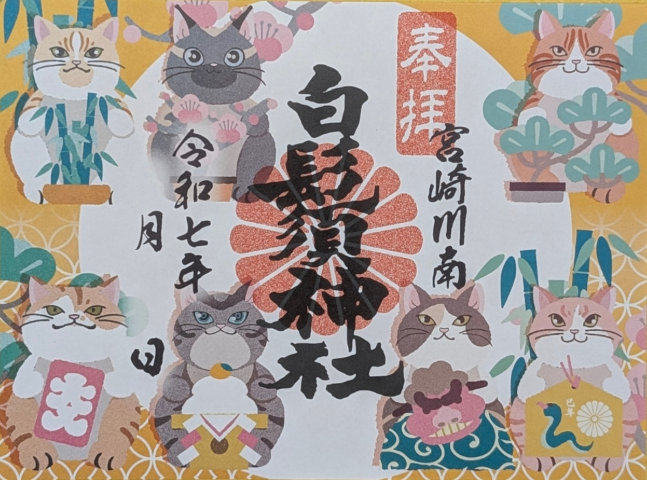 奉拝
宮崎川南
白鬚神社
令和七年
月 日
大入
巳年